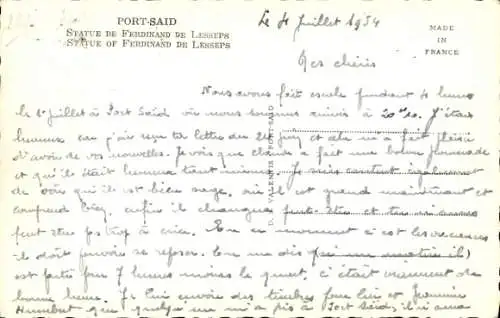 PORT-SAID
STATUE DE FERDINAND DE LESSEPS
STATUE OF FERDINAND DE LESSEPS
MADE
IN
FRANCE
Le 4 Juillet 1954
Mes chéris
Nous avons fait escale pendant 4 heures
le 1er juillet à Port Saïd où nous sommes arrivés à 20h10. J'étais
heureux car j'ai reçu ta lettre du 28 juin et cela m'a fait plaisir
d'avoir de vos nouvelles. Je vois que a fait une bonne promenade
et qu'il était heureux tout même. Je suis content également
de voir qu'il est bien sage, il est grand maintenant et
comprend bien, enfin il changera peut-être et tu
peut être pas trop à crier. En ce moment c'est les vacances
il doit pouvoir se reposer. Tu me dis
est partie pour 7 heures moins le quart, c'était vraiment de
bonne heure. Je lui envoie des timbres pour lui et
que quelqu'un m'a pris à Port Saïd, il
D. VALENTIN PORT-SAID